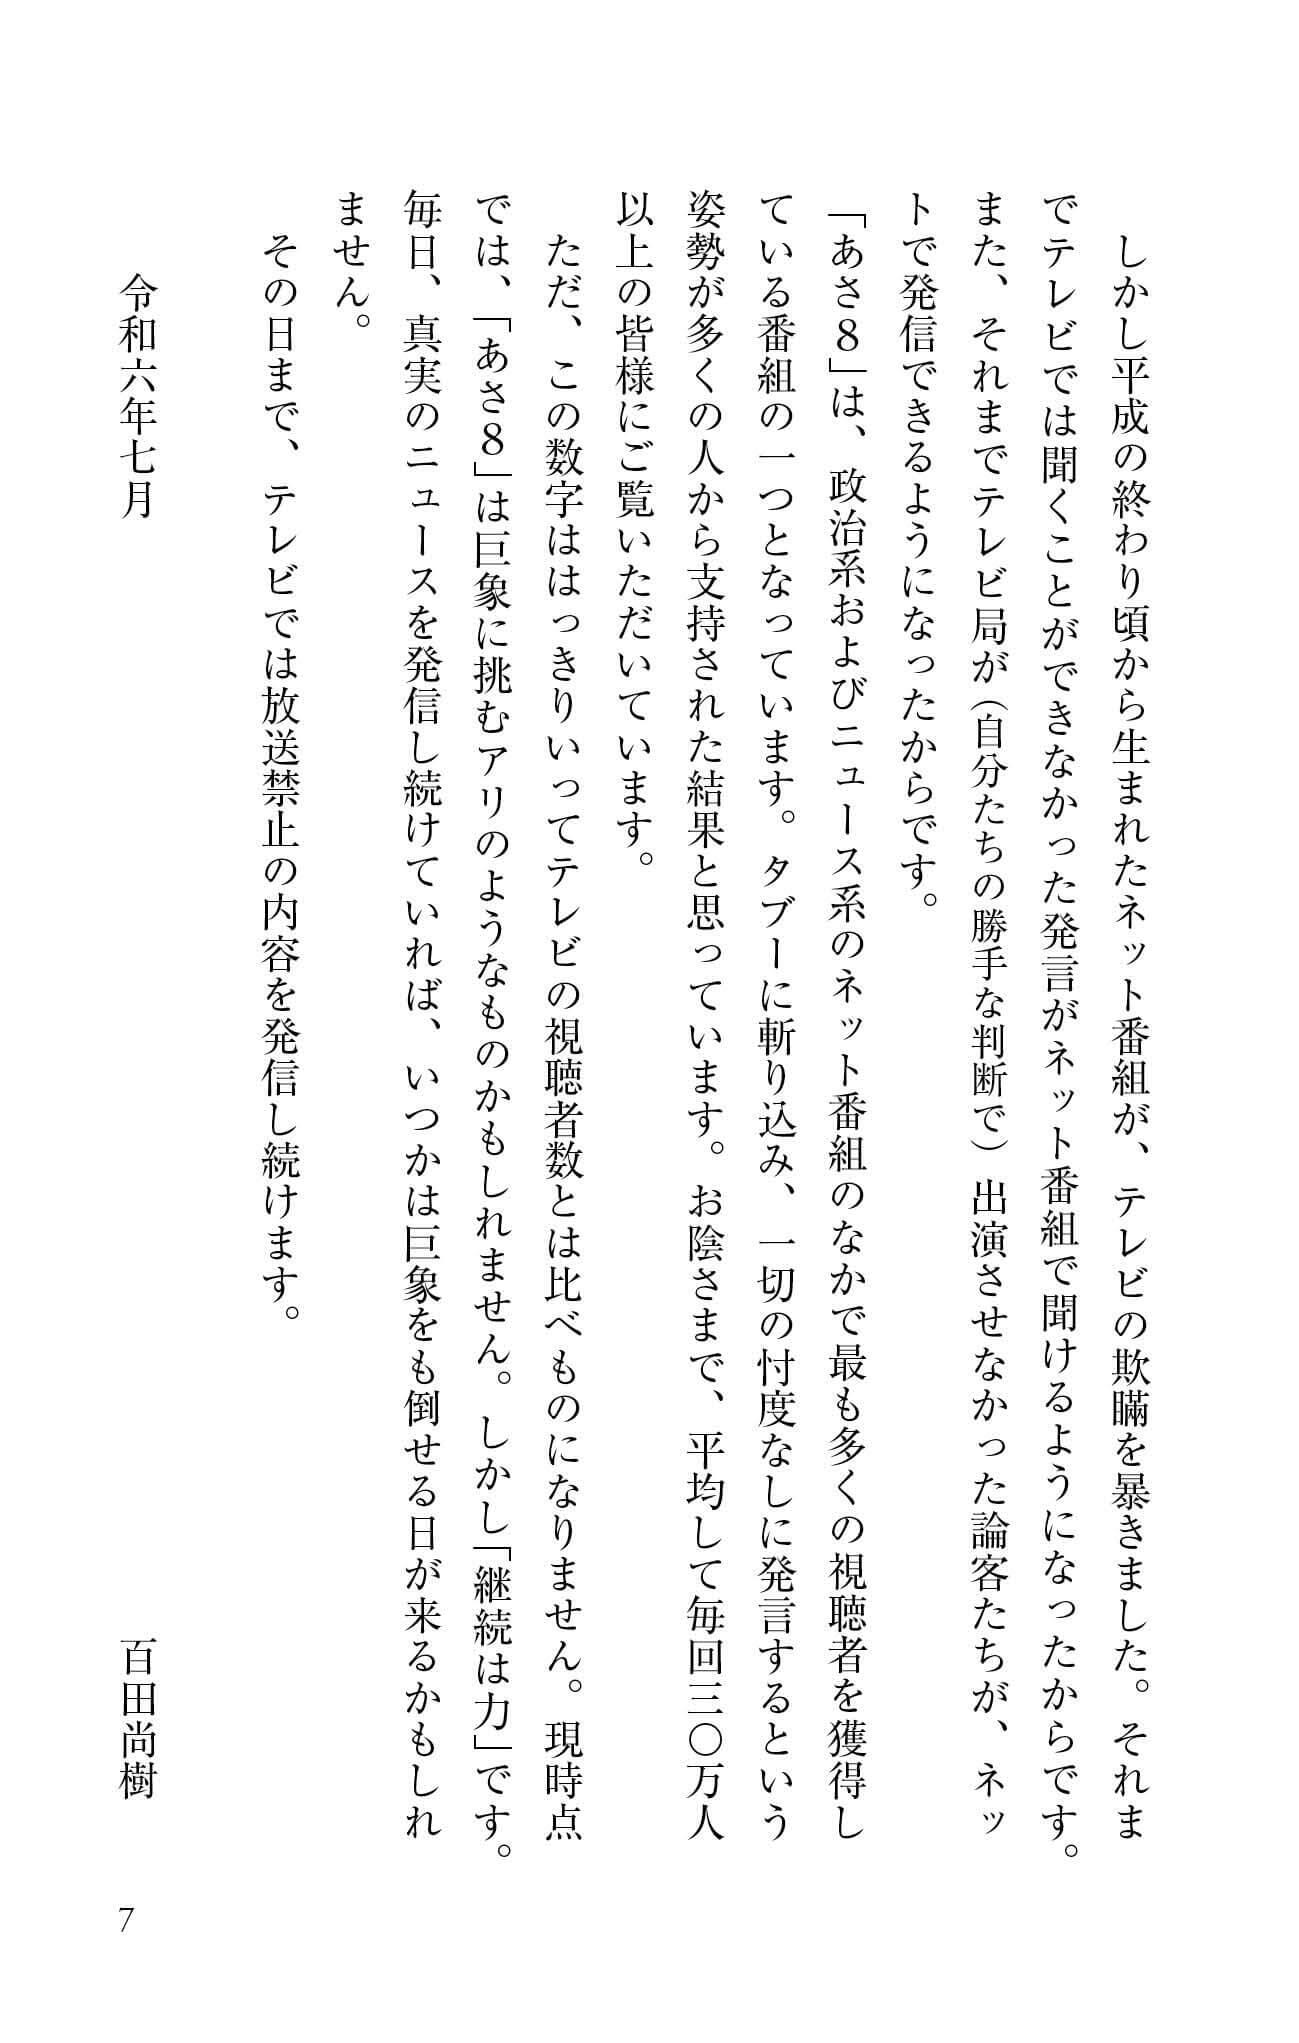 しかし平成の終わり頃から生まれたネット番組が、テレビの欺瞞を暴きました。それま
でテレビでは聞くことができなかった発言がネット番組で聞けるようになったからです。
また、それまでテレビ局が（自分たちの勝手な判断で）出演させなかった論客たちが、ネッ
トで発信できるようになったからです。
「あさ８」は、政治系およびニュース系のネット番組のなかで最も多くの視聴者を獲得し
ている番組の一つとなっています。タブーに斬り込み、一切の忖度なしに発言するという
姿勢が多くの人から支持された結果と思っています。お陰さまで、平均して毎回三〇万人
以上の皆様にご覧いただいています。
ただ、この数字ははっきりいってテレビの視聴者数とは比べものになりません。現時点
では、「あさ８」は巨象に挑むアリのようなものかもしれません。しかし「継続は力」です。
毎日、真実のニュースを発信し続けていれば、いつかは巨象をも倒せる日が来るかもしれ
ません。
その日まで、テレビでは放送禁止の内容を発信し続けます。
令和六年七月
百田尚樹
7